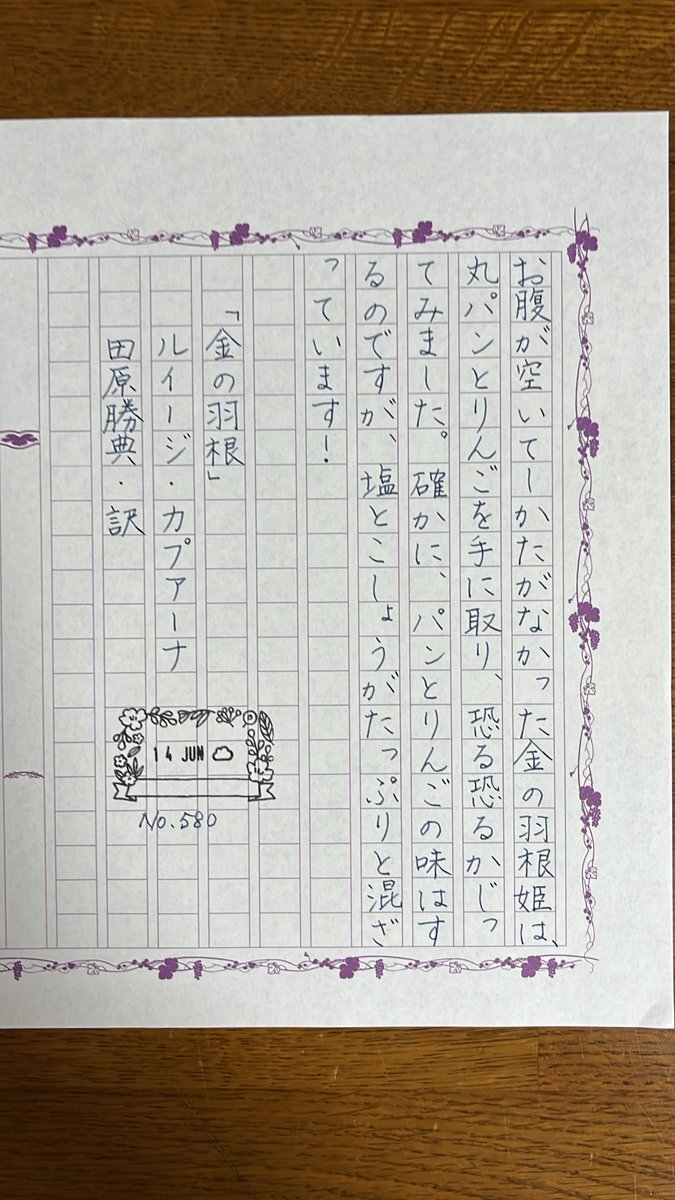 お腹が空いてしかたがなかった金の羽根姫は、
丸パンとりんごを手に取り、恐る恐るかじっ
てみました。確かに、パンとりんごの味はす
るのですが、塩とこしょうがたっぷりと混ざ
っています！
「金の羽根」
ルイージ・カプアーナ
田原勝典・訳
14 JUN
No.580